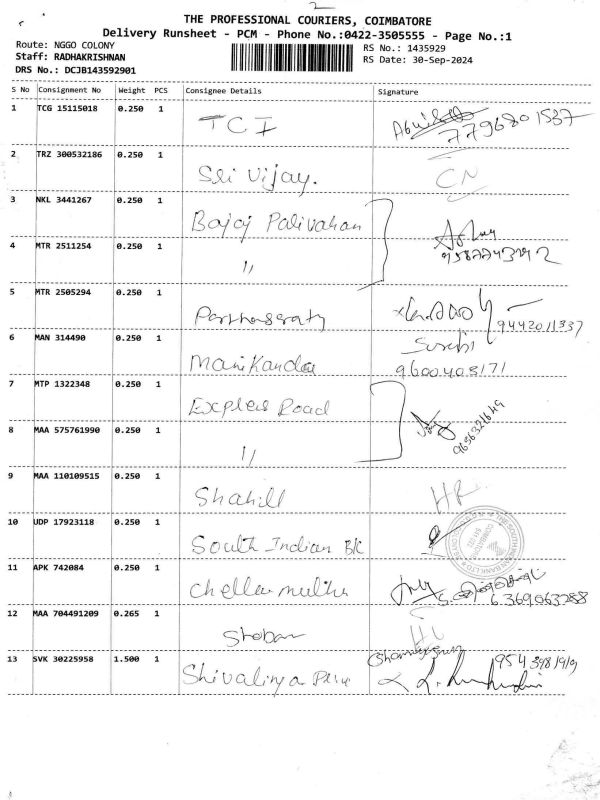 2
THE PROFESSIONAL COURIERS, COIMBATORE
Delivery Runsheet - PCM - Phone No.:0422-3505555 - Page No.:1
Route: NGGO COLONY
RS No.: 1435929
Staff: RADHAKRISHNAN
RS Date: 30-Sep-2024
DRS No.: DCJB143592901
S No Consignment No Weight PCS Consignee Details Signature
1 TCG 15115018 0.250 1 TCI 7796801537
2 TRZ 300532186 0.250 1 Sri Vijay. CN
3 NKL 3441267 0.250 1 Bajaj Parivahan
4 MTR 2511254 0.250 1 11
5 MTR 2505294 0.250 1 9442011337
6 MAN 314490 0.250 1 Manikanda 9600403171
7 MTP 1322348 0.250 1 Express Road
8 MAA 575761990 0.250 1 11 9656321649
9 MAA 110109515 0.250 1 Shahill
10 UDP 17923118 0.250 1 South Indian BK
11 APK 742084 0.250 1 Chella muthu 6369063288
12 MAA 704491209 0.265 1 Shoban
13 SVK 30225958 1.500 1 Shivalinga